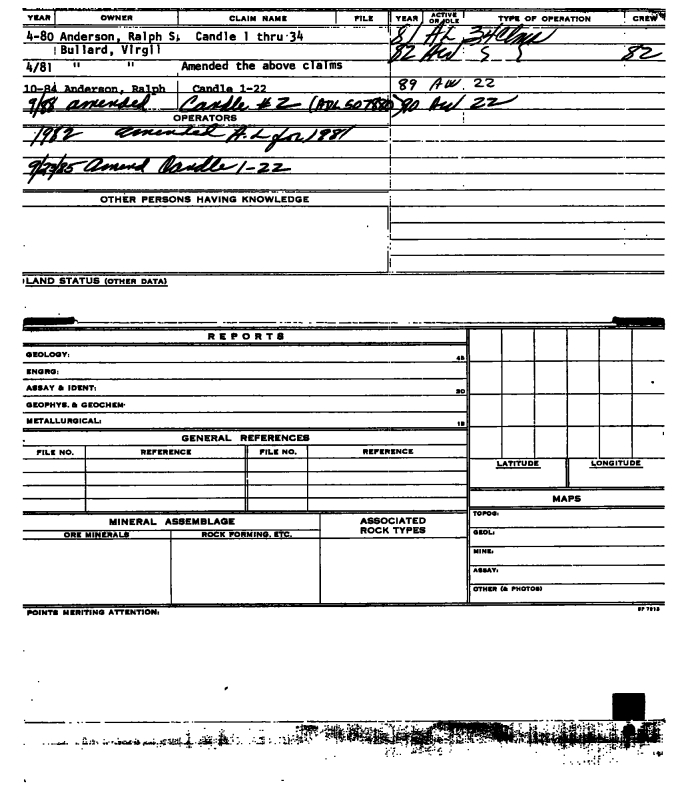 YEAR OWNER CLAIM NAME FILE YEAR ACTIVE OR IDLE TYPE OF OPERATION CREW
4-80 Anderson, Ralph S. Candle 1 thru 34 81 AL 34 Clms
Bullard, Virgil 82 AW 82
4/81 " " Amended the above claims
10-84 Anderson, Ralph Candle 1-22 89 AW 22
9/88 amended Candle #2 (ADL 507880) 90 AW 22
OPERATORS
1982 amended A.L for 1981
9/23/85 Amend Candle 1-22
OTHER PERSONS HAVING KNOWLEDGE
LAND STATUS (OTHER DATA)
REPORTS
GEOLOGY: 45
ENGRG:
ASSAY & IDENT: 30
GEOPHYS. & GEOCHEM.
METALLURGICAL: 15
GENERAL REFERENCES
FILE NO. REFERENCE FILE NO. REFERENCE
LATITUDE LONGITUDE
MAPS
MINERAL ASSEMBLAGE ASSOCIATED ROCK TYPES
ORE MINERALS ROCK FORMING, ETC.
TOPOG:
GEOL:
MINE:
ASSAY:
OTHER (& PHOTOS)
POINTS MERITING ATTENTION: